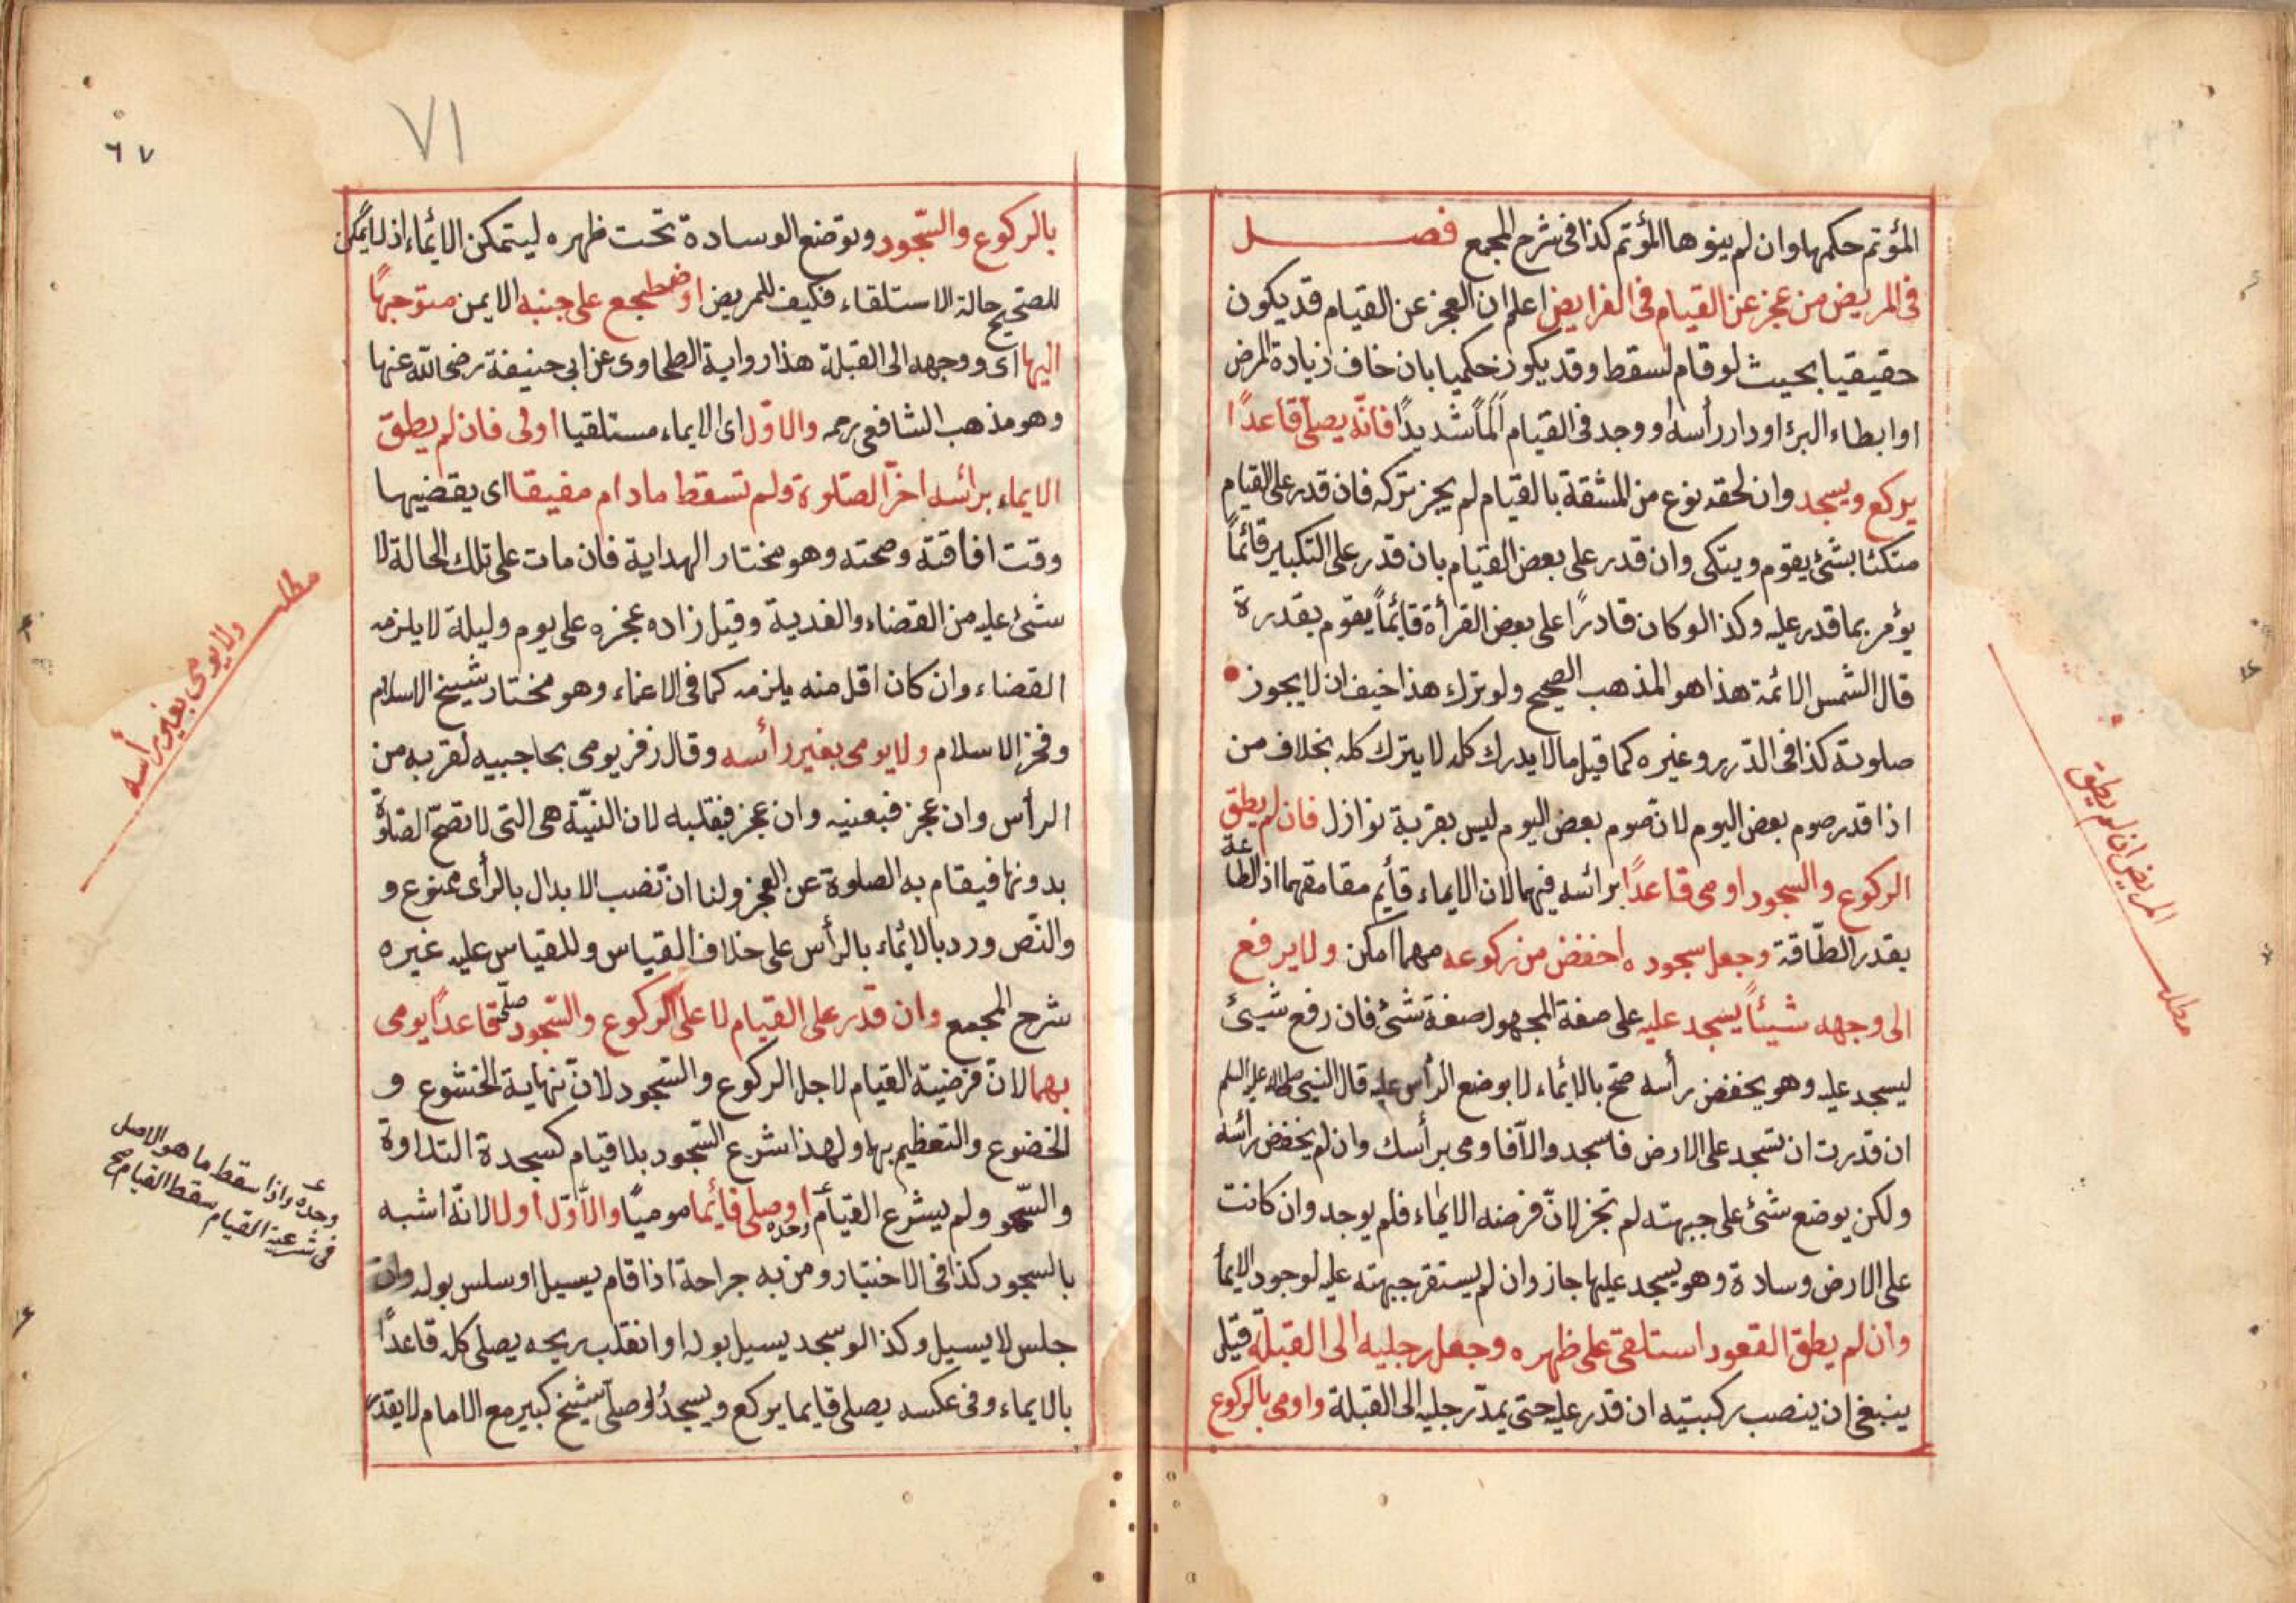 المؤتم حكمها وان لم ينوها المؤتم كذا فى شرح المجمع فصل
فى المريض من عجز عن القيام فى الفرايض اعلم ان العجز عن القيام قد يكون
حقيقيا بحيث لو قام لسقط وقد يكون حكميا بان خاف زيادة المرض
او ابطاء البرء او دار رأسه او وجد فى القيام ألماً شديداً فانّه يصلى قاعداً
يركع ويسجد وان لحقه نوع من المشقة بالقيام لم يجز تركه فان قدر على القيام
متكئا بشئ يقوم ويتكى وان قدر على بعض القيام بان قدر على التكبير قائماً
يؤمر بما قدر عليه وكذا لو كان قادراً على بعض القرأة قائماً يقوم بقدره
قال الشمس الائمة هذا هو المذهب الصحيح ولو ترك هذا خيف ان لا يجوز
صلوته كذا فى الدرر وغيره كما قيل ما لا يدرك كله لا يترك كله بخلاف من
اذا قدر صوم بعض اليوم لانّ صوم بعض اليوم ليس بقربة نوازل فان لم يطق
الركوع والسجود اومى قاعداً برائسه فيهما لان الايماء قائم مقامهما اذ الطاعة
بقدر الطّاقة وجعل سجوده اخفض من ركوعه مهما امكن ولا يرفع
الى وجهه شيئاً يسجد عليه على صفة المجهول صفة شئ فان رفع شيئ
ليسجد عليه وهو يخفض رأسه صح بالايماء لا بوضع الرأس عليه قال النبى صلى الله عليه السلم
ان قدرت ان تسجد على الارض فاسجد والّا فاومى برأسك وان لم يخفض رائسه
ولكن يوضع شئ على جبهته لم تجز لانّ فرضه الايماء فلم يوجد وان كانت
على الارض وسادة وهو يسجد عليها جاز وان لم يستقر جبهته عليه لوجود الايما
وان لم يطق القعود استلقى على ظهره وجعل رجليه الى القبلة قيل
ينبغى ان ينصب ركبتيه ان قدر عليه حتى يمدّ رجليه الى القبلة واومى بالركوع
المريض اذا لم يطيق
مطلب
٧١
٦٧
بالركوع والسّجود وتوضع الوسادة تحت ظهره ليتمكن الائماء اذ لا يمكن
للصحيح حالة الاستلقاء فكيف للمريض او ضطجع على جنبه الايمن متوجهاً
اليها اى ووجهه الى القبلة هذا رواية الطحاوى عن ابى حنيفة رضى الله عنها
وهو مذهب الشافعى رحمه والاوّل اى الايماء مستلقيا اولى فان لم يطق
الايماء برائسه اخرّ الصّلوة ولم تسقط مادام مفيقا اى يقضيها
وقت افاقته وصحته وهو مختار الهداية فان مات على تلك الحالة لا
شئ عليه من القضاء والفدية وقيل زاده عجزه على يوم وليلة لا يلزمه
القضاء وان كان اقل منه يلزمه كما فى الاغماء وهو مختار شيخ الاسلام
وفخر الاسلام ولا يومى بغير رائسه وقال زفر يومى بحاجبيه لقربه من
الرأس وان عجز فبعنيه وان عجز فبقلبه لان النيّة هى التى لا تصحّ الصلوة
بدونها فيقام به الصلوة عن العجز ولنا ان نصب الابدال بالرأى ممنوع و
والنّص ورد بالائماء بالرأس على خلاف القياس وللقياس عليه غيره
شرح المجمع وان قدر على القيام لا على الركوع والسّجود صلّى قاعداً يومى
بهما لانّ فرضيّة القيام لاجل الركوع والسّجود لانّ نهاية الخشوع و
الخضوع والتعظيم بها ولهذا شرع السّجود بلا قيام كسجدة التلاوة
والسّهو ولم يشرع القيام وحده او صلى قائما موميّاً والاوّل اولا لانّه اشبه
بالسجود كذا فى الاختيار ومن به جراحة اذا قام يسيل او سلس بوله وان
جلس لا يسيل وكذا لو سجد يسيل بوله او انفلت ريحه يصلى كله قاعداً
بالايماء وفى عكسه يصلى قايما يركع ويسجد ولو صلّى شيخ كبير مع الامام لا يقدر
مطلب
ولا يومى بغير رأسه
وحده واذا سقط ما هو الاصل
فى شرعية القيام سقط القيام صح